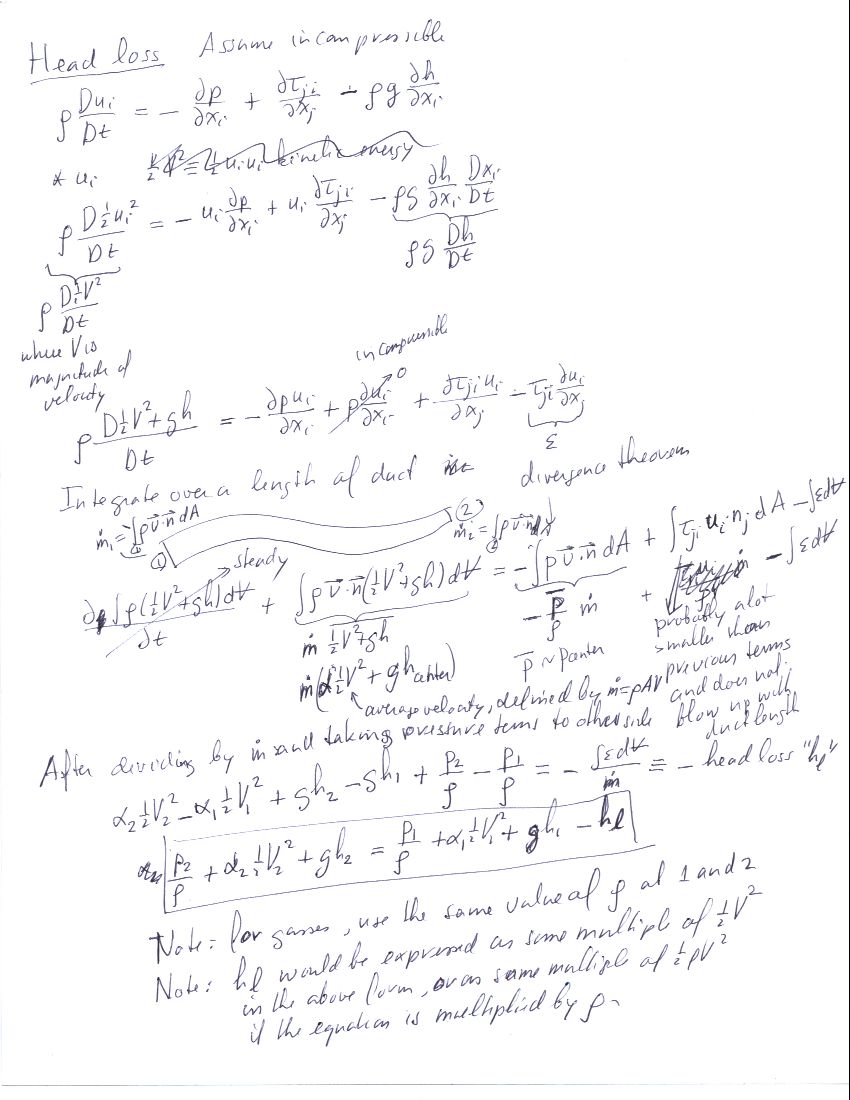 Head loss Assume incompressible
ρ Du_i/Dt = - ∂p/∂x_i + ∂τ_ji/∂x_j - ρg ∂h/∂x_i
* u_i ½V² ≡ ½ u_i u_i kinetic energy
ρ D½u_i²/Dt = - u_i ∂p/∂x_i + u_i ∂τ_ji/∂x_j - ρg ∂h/∂x_i Dx_i/Dt
ρg Dh/Dt
ρ D½V²/Dt
where V is
magnitude of
velocity
incompressible
ρ D½V²+gh/Dt = - ∂pu_i/∂x_i + p ∂u_i/∂x_i → 0 + ∂τ_ji u_i/∂x_j - τ_ji ∂u_i/∂x_j
ε
Integrate over a length of duct
divergence theorem
ṁ₁ = -∫ρ v⃗·n⃗ dA ① ② ṁ₂ = ∫ρ v⃗·n⃗ dA
steady
∂∫ρ(½V²+gh)dV/∂t + ∫ρ v⃗·n⃗(½V²+gh)dV = -∫p v⃗·n⃗ dA + ∫τ_ji u_i n_j dA - ∫εdV
ṁ ½V²+gh
- p̄/ρ ṁ + ṁ - ∫εdV
ṁ(α½V² + gh center)
p̄ ~ p center
probably a lot
smaller than
previous terms
and does not
blow up with
duct length
average velocity, defined by ṁ=ρAV
After dividing by ṁ and taking pressure terms to other side
α₂½V₂² - α₁½V₁² + gh₂ - gh₁ + p₂/ρ - p₁/ρ = - ∫εdV/ṁ ≡ - head loss "hℓ"
p₂/ρ + α₂½V₂² + gh₂ = p₁/ρ + α₁½V₁² + gh₁ - hℓ
Note: for gasses, use the same value of ρ at 1 and 2
Note: hℓ would be expressed as some multiple of ½V²
in the above form, or as some multiple of ½ρV²
if the equation is multiplied by ρ.